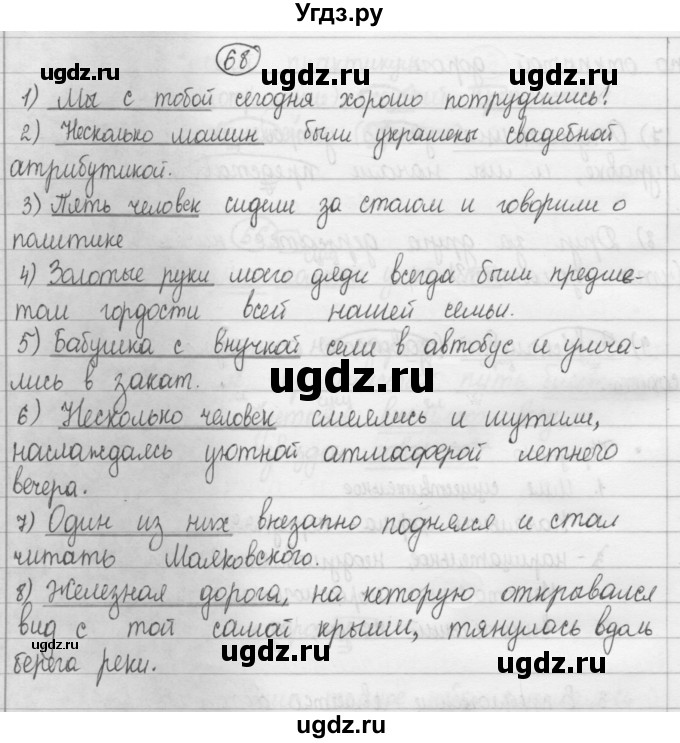 Угдз.ру
68
ugdz.ru ugdz.ru ugdz.ru
1) Мы с тобой сегодня хорошо потрудились!
2) Несколько машин были украшены свадебной
атрибутикой.
ugdz.ru ugdz.ru
3) Пять человек сидели за столом и говорили о
политике
ugdz.ru ugdz.ru ugdz.ru
4) Золотые руки моего дяди всегда были предме-
том гордости всей нашей семьи.
ugdz.ru ugdz.ru
5) Бабушка с внучкой сели в автобус и умча-
лись в закат.
ugdz.ru
6) Несколько человек смеялись и шутили,
наслаждаясь уютной атмосферой летнего
вечера.
ugdz.ru ugdz.ru ugdz.ru
7) Один из них внезапно поднялся и стал
читать Маяковского.
ugdz.ru ugdz.ru
8) Железная дорога, на которую открывался
вид с той самой крыши, тянулась вдоль
берега реки.
ugdz.ru ugdz.ru
ugdz.ru ugdz.ru